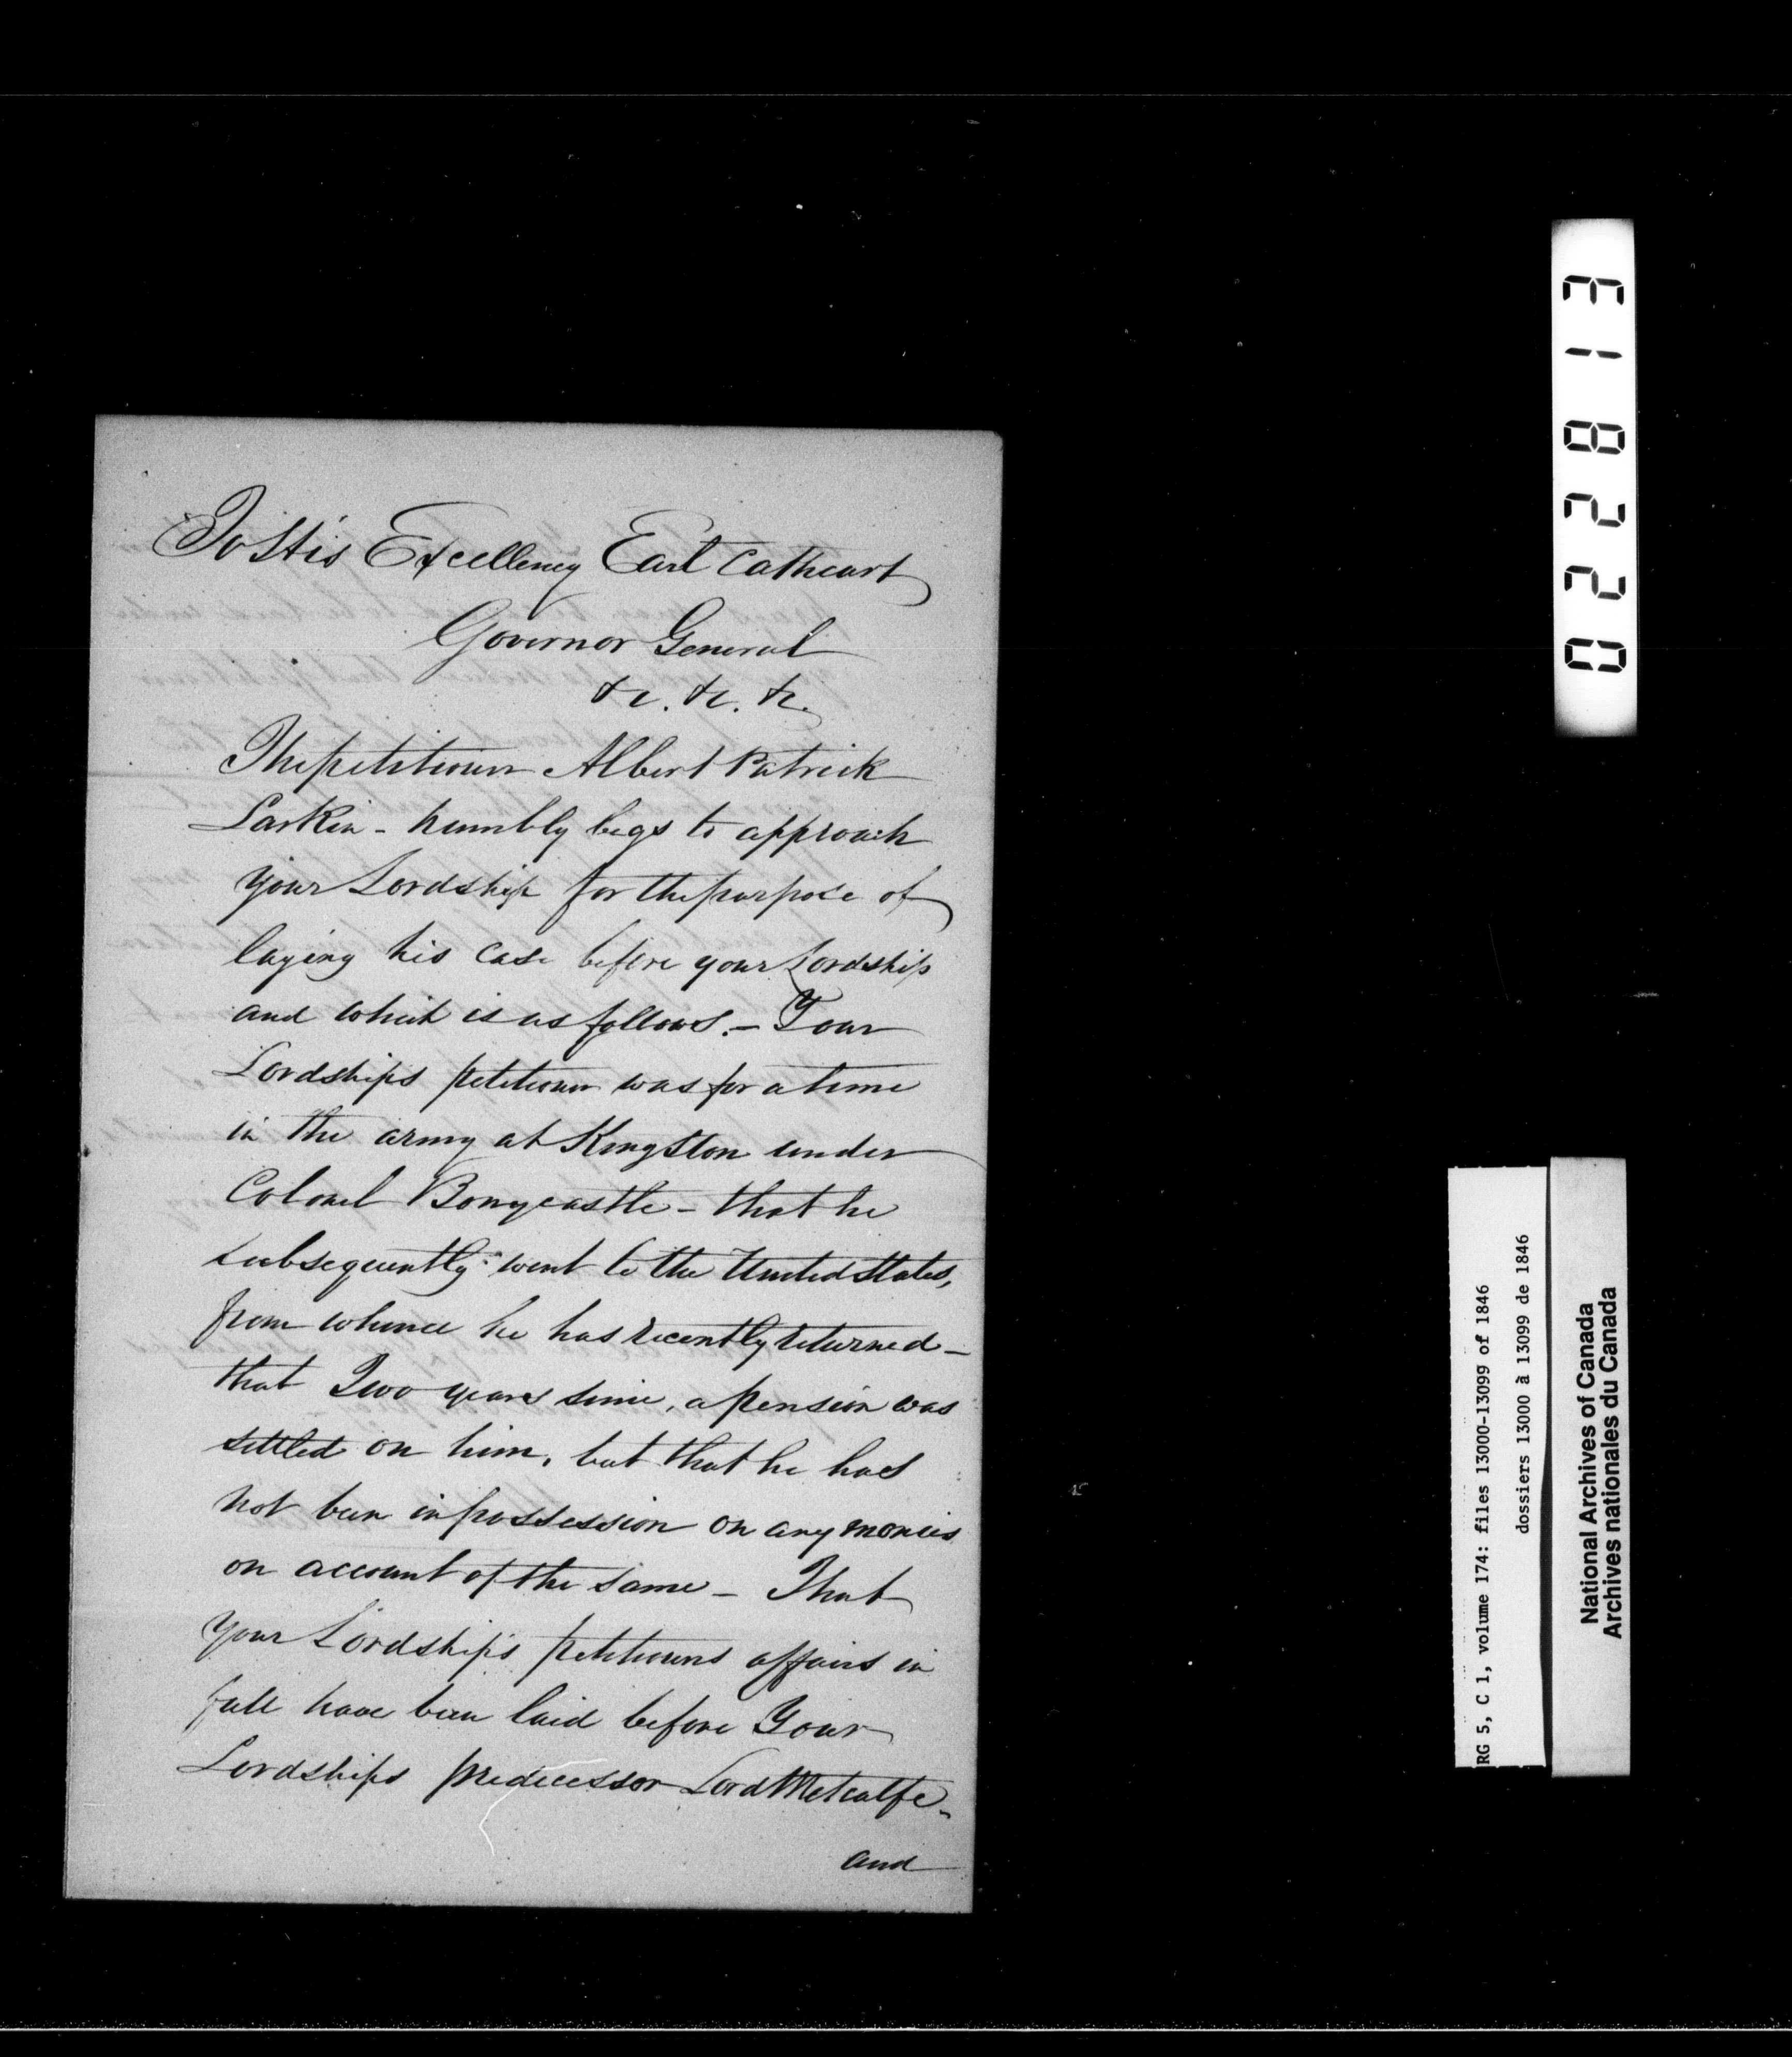 To His Excellency Earl Cathcart
Governor General
&c. &c. &c.
The petitioner Albert Patrick
Larkin - humbly begs to approach
your Lordship for the purpose of
laying his case before your Lordship
and which is as follows. - Your
Lordships petitioner was for a time
in the army at Kingston under
Colonel Bonycastle - that he
subsequently went to the United States,
from whence he has recently returned -
that Two years since, a pension was
settled on him, but that he has
not been in possession on any monies
on account of the same - That
your Lordship's petitioners affairs in
full have been laid before Your
Lordships predecessor Lord Metcalfe -
and
022813
RG 5, C 1, volume 174: files 13000-13099 of 1846
dossiers 13000 à 13099 de 1846
National Archives of Canada
Archives nationales du Canada